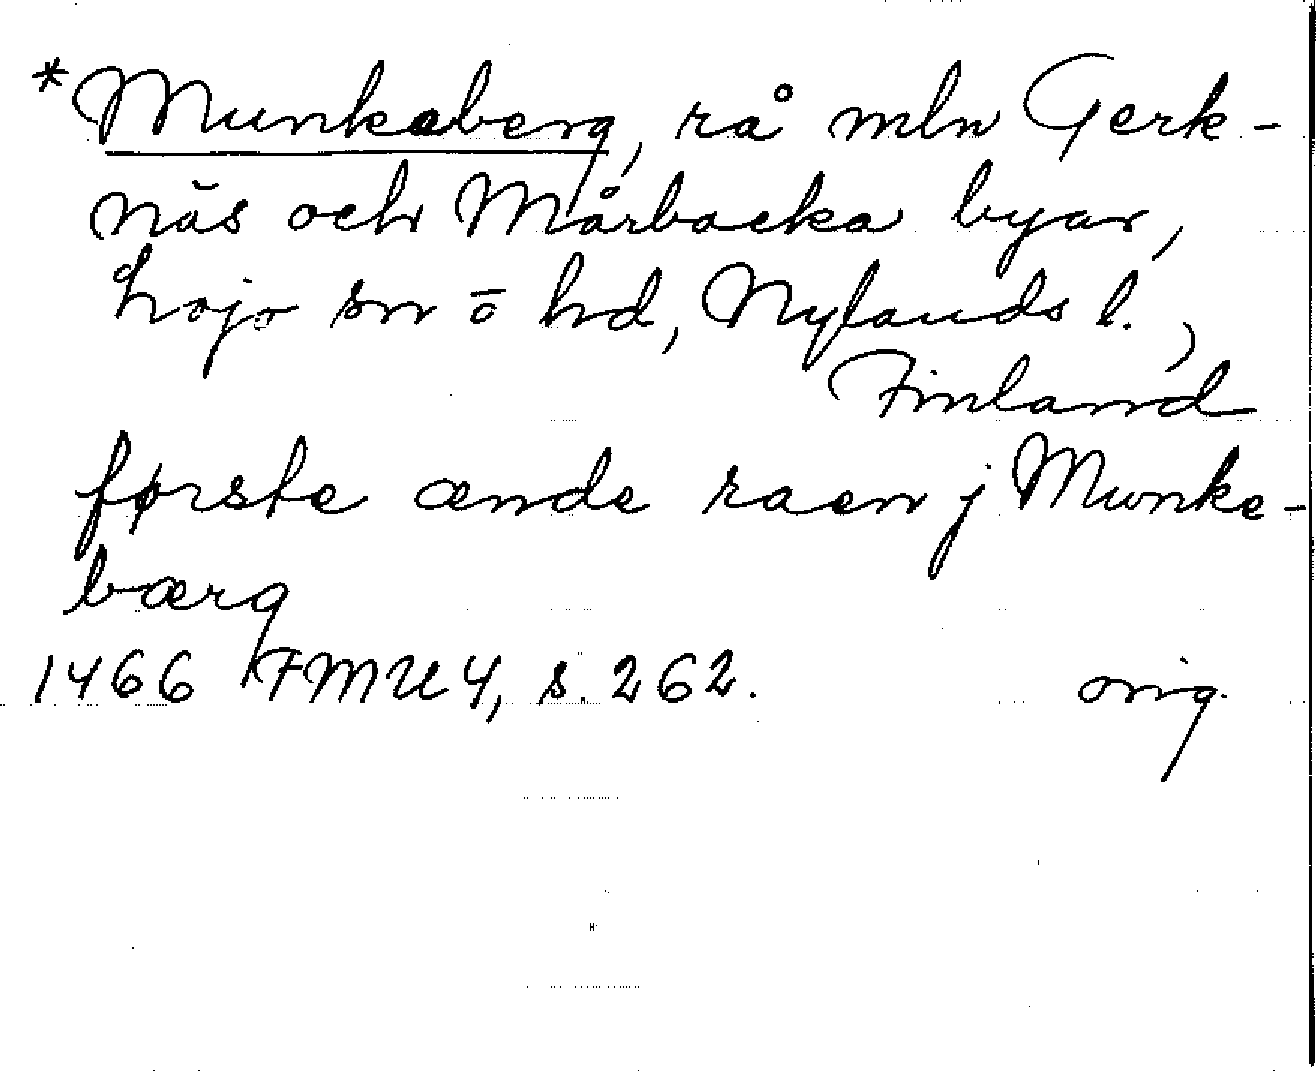 *Munkeberg, rå mln Gerk-
näs och Mårbacka byar,
Lojo sn o hd, Nylands l.,
Finland
første ænde raen j Munke-
bærg
1466 FMU 4, s. 262. orig.